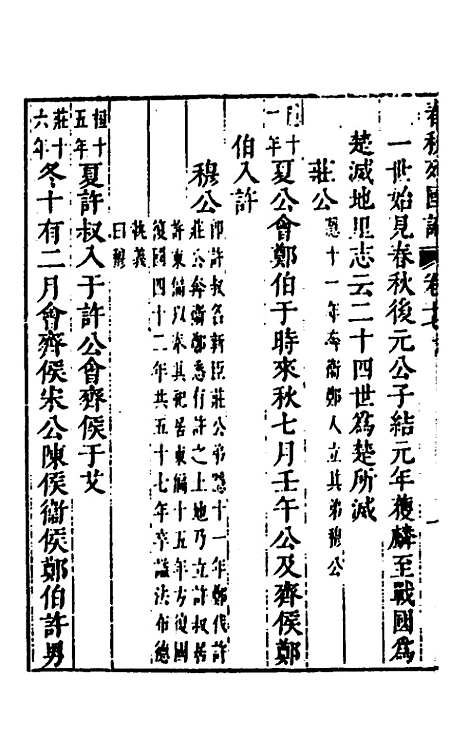 春秋列國
一世始見春秋後元公子結元年獲麟至戰國爲
楚滅地里志云二十四世爲楚所滅
莊公 隱十一年奔衛鄭人立其弟穆公
十一年 夏公會鄭伯于時來秋七月壬午公及齊侯鄭
伯入許
穆公 即許叔名新臣莊公弟隱十一年鄭伐許
莊公奔衛鄭悉有許之土地乃立許叔居
許東偏以奉其祀居東偏十五年方復國
復國四十二年共五十七年卒謚法布德
執義
曰穆
桓十五年 夏許叔入于許公會齊侯于艾
莊十六年 冬十有二月會齊侯宋公陳侯衞侯鄭伯許男